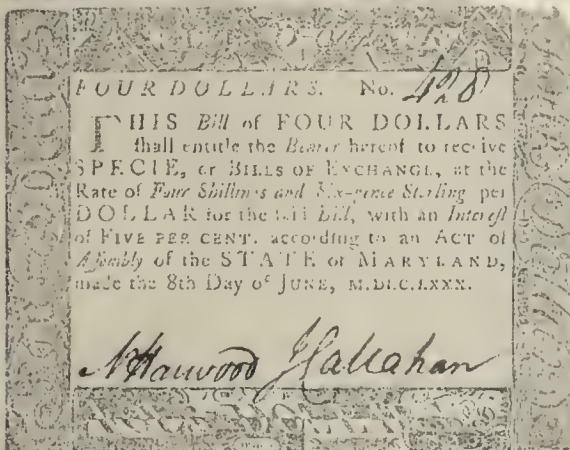 FOUR DOLLARS. No. 428
THIS Bill of FOUR DOLLARS
shall entitle the Bearer hereof to receive
SPECIE, or BILLS OF EXCHANGE, at the
Rate of Four Shillings and Six-pence Sterling per
DOLLAR for the said Bill, with an Interest
of FIVE PER CENT. according to an ACT of
Assembly of the STATE of MARYLAND,
made the 8th Day of JUNE, M.DCC.LXXX.
NHarwood JCallahan